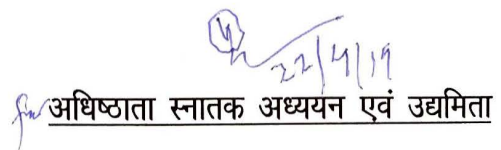 22/4/19
for अधिष्ठाता स्नातक अध्ययन एवं उद्यमिता